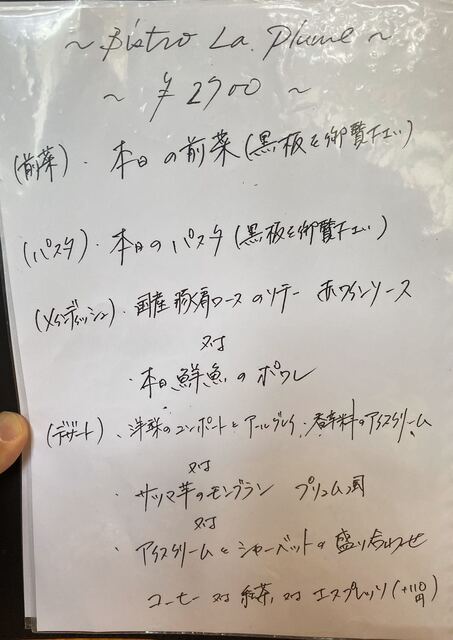 ~ Bistro La Plume ~
~ ¥2900 ~
(前菜)・本日の前菜(黒板を御覧下さい)
(パスタ)・本日のパスタ(黒板を御覧下さい)
(メインディッシュ)・国産豚肩ロースのソテー 赤ワインソース
又は
・本日鮮魚のポワレ
(デザート)、洋梨のコンポートとアールグレイ、香辛料のアイスクリーム
又は
・サツマ芋のモンブラン プリュム風
又は
・アイスクリームとシャーベットの盛り合わせ
コーヒー 又は 紅茶 又は エスプレッソ(+110円)